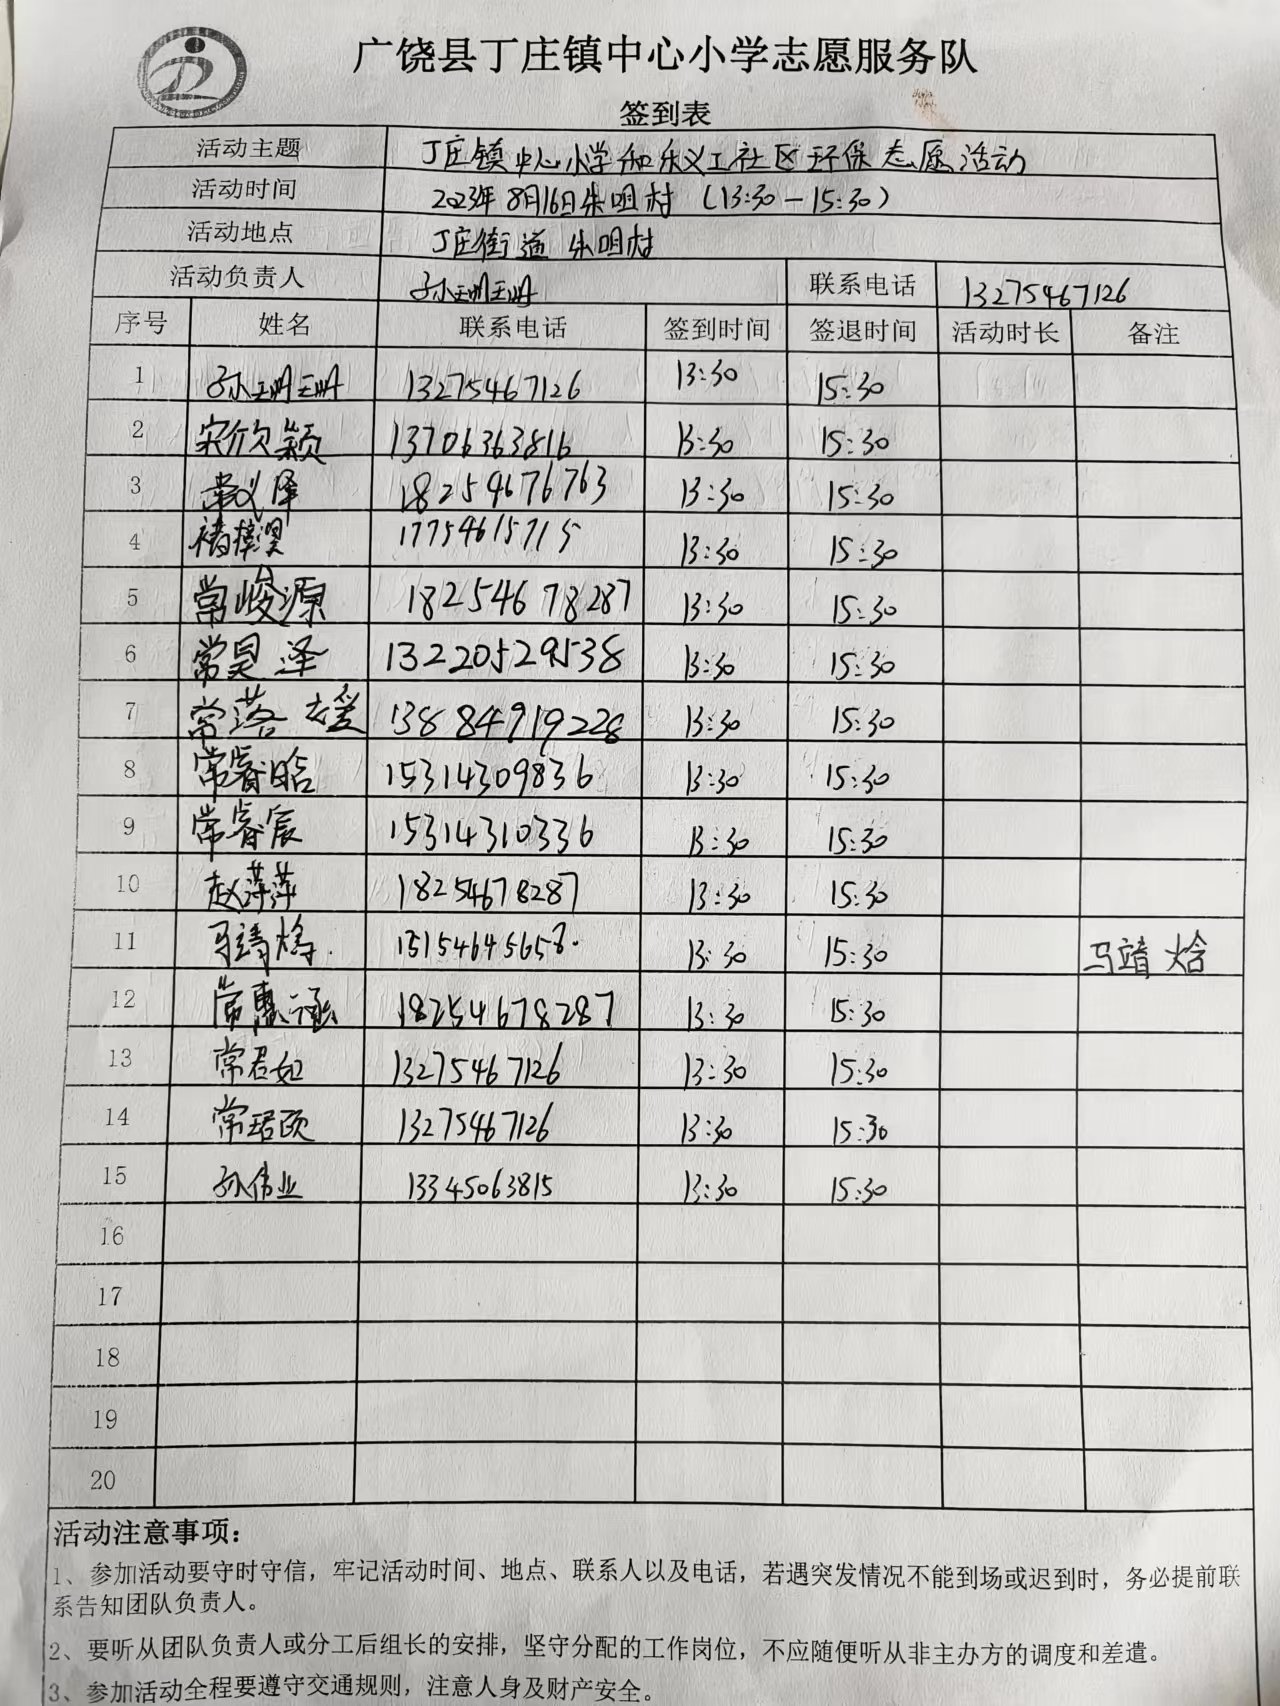 广饶县丁庄镇中心小学志愿服务队
签到表
活动主题 丁庄镇中心小学和乐义工社区环保志愿活动
活动时间 2023年8月16日朱咀村（13:30-15:30）
活动地点 丁庄街道 朱咀村
活动负责人 孙玥玥 联系电话 13275467126
序号 姓名 联系电话 签到时间 签退时间 活动时长 备注
1 孙玥玥 13275467126 13:30 15:30
2 宋欣颖 13706363816 13:30 15:30
3 常义泽 18254676763 13:30 15:30
4 17754615715 13:30 15:30
5 常峻源 18254678287 13:30 15:30
6 常昊泽 13220529538 13:30 15:30
7 常落媛 13884919228 13:30 15:30
8 常睿晗 15314309836 13:30 15:30
9 常睿宸 15314310336 13:30 15:30
10 赵萍萍 18254678287 13:30 15:30
11 马靖焓 15154645658 13:30 15:30 马靖焓
12 常惠涵 18254678287 13:30 15:30
13 常君如 13275467126 13:30 15:30
14 常珺颐 13275467126 13:30 15:30
15 孙伟业 13345063815 13:30 15:30
16
17
18
19
20
活动注意事项：
1、参加活动要守时守信，牢记活动时间、地点、联系人以及电话，若遇突发情况不能到场或迟到时，务必提前联
系告知团队负责人。
2、要听从团队负责人或分工后组长的安排，坚守分配的工作岗位，不应随便听从非主办方的调度和差遣。
3、参加活动全程要遵守交通规则，注意人身及财产安全。